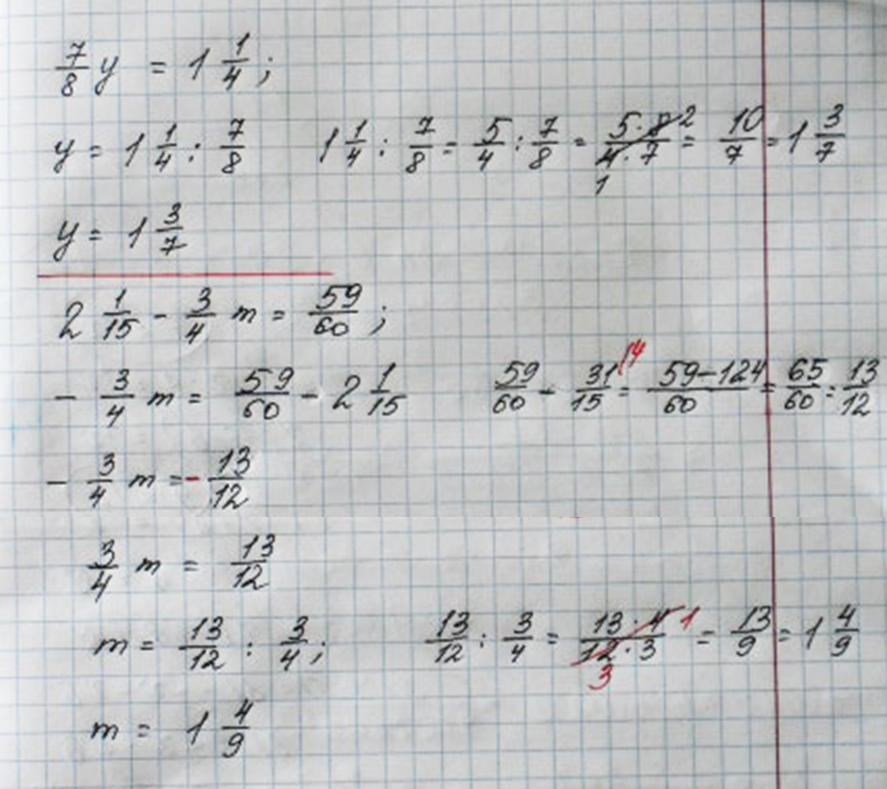 7/8 y = 1 1/4;
y = 1 1/4 : 7/8 1 1/4 : 7/8 = 5/4 : 7/8 = 5·8 2/4·7 1 = 10/7 = 1 3/7
y = 1 3/7
2 1/15 - 3/4 m = 59/60;
- 3/4 m = 59/60 - 2 1/15 59/60 - 31/15 (4 = 59-124/60 = 65/60 = 13/12
- 3/4 m = - 13/12
3/4 m = 13/12
m = 13/12 : 3/4; 13/12 : 3/4 = 13·4 1/12·3 3 = 13/9 = 1 4/9
m = 1 4/9